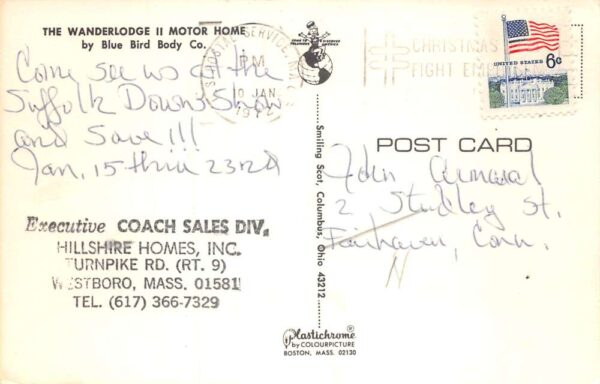 THE WANDERLODGE II MOTOR HOME
by Blue Bird Body Co.
Come see us at the
Suffolk Downs Show
and Save!!!
Jan. 15 thru 23rd
Executive COACH SALES DIV.
HILLSHIRE HOMES, INC.
TURNPIKE RD. (RT. 9)
WESTBORO, MASS. 01581
TEL. (617) 366-7329
POSTAL SERVICE
PM
JAN
1972
CHRISTMAS
FIGHT
UNITED STATES 6c
Smiling Scot, Columbus, Ohio 43212
POST CARD
John
2 Studley St.
Fairhaven, Conn.
Plastichrome®
by COLOURPICTURE
BOSTON, MASS. 02130